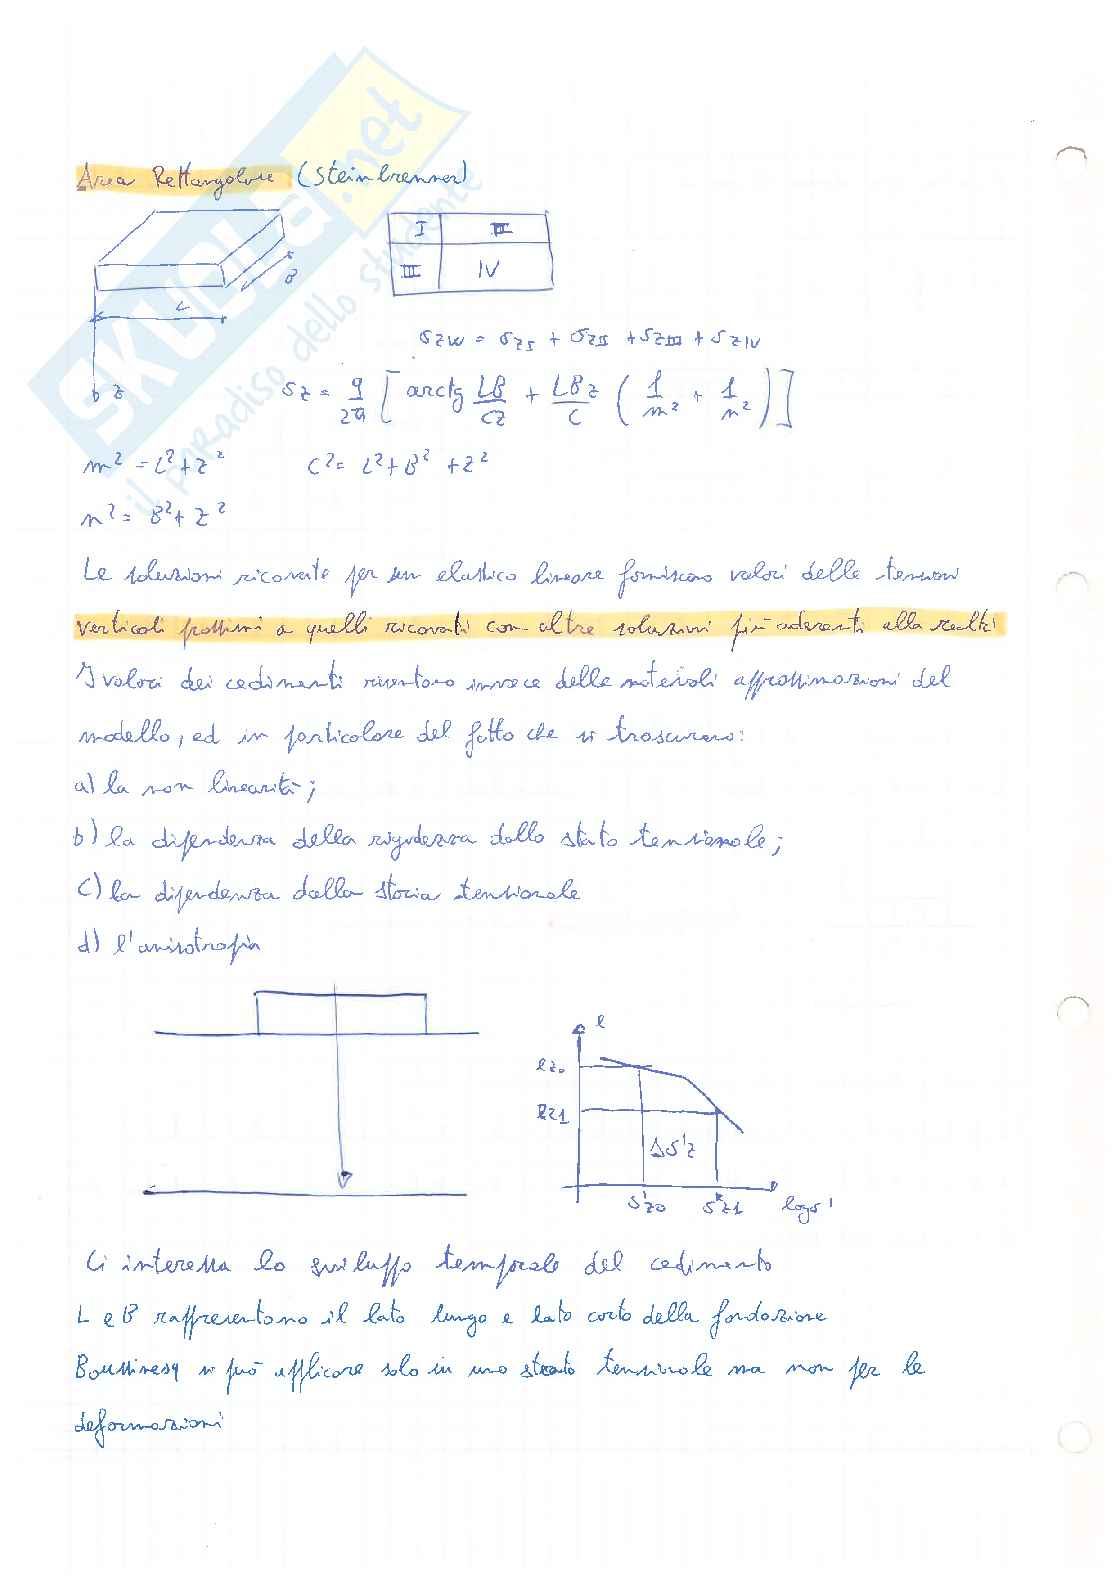 Area Rettangolare (Steinbrenner)
I II
III IV
B
L
z
σzw = σzI + σzII + σzIII + σzIV
σz = q/2π [ arctg LB/Cz + LBz/C ( 1/m² + 1/n² ) ]
m² = L² + z² C² = L² + B² + z²
n² = B² + z²
Le soluzioni ricavate per un elastico lineare forniscono valori delle tensioni
verticali prossimi a quelli ricavati con altre soluzioni più aderenti alla realtà
I valori dei cedimenti risentono invece delle notevoli approssimazioni del
modello, ed in particolare del fatto che si trascurano:
a) la non linearità;
b) la dipendenza della rigidezza dallo stato tensionale;
c) la dipendenza dalla storia tensionale
d) l'anisotropia
e
ez0
ez1
Δσ'z
σ'z0 σ'z1 logσ'
Ci interessa lo sviluppo temporale del cedimento
L e B rappresentano il lato lungo e lato corto della fondazione
Boussinesq si può applicare solo in uno stato tensionale ma non per le
deformazioni
SKUOLA.net
il paradiso dello studente